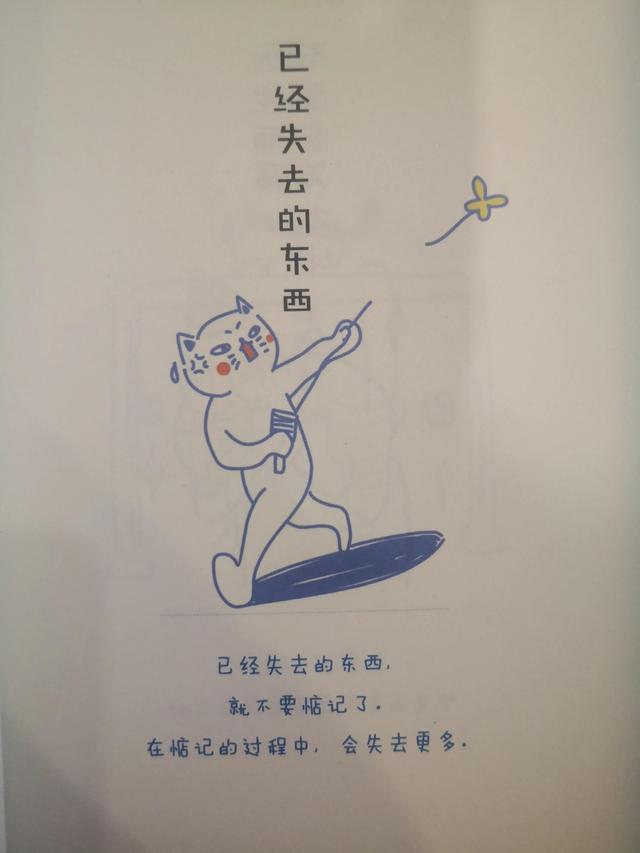 已经失去的东西
已经失去的东西,
就不要惦记了.
在惦记的过程中,会失去更多.